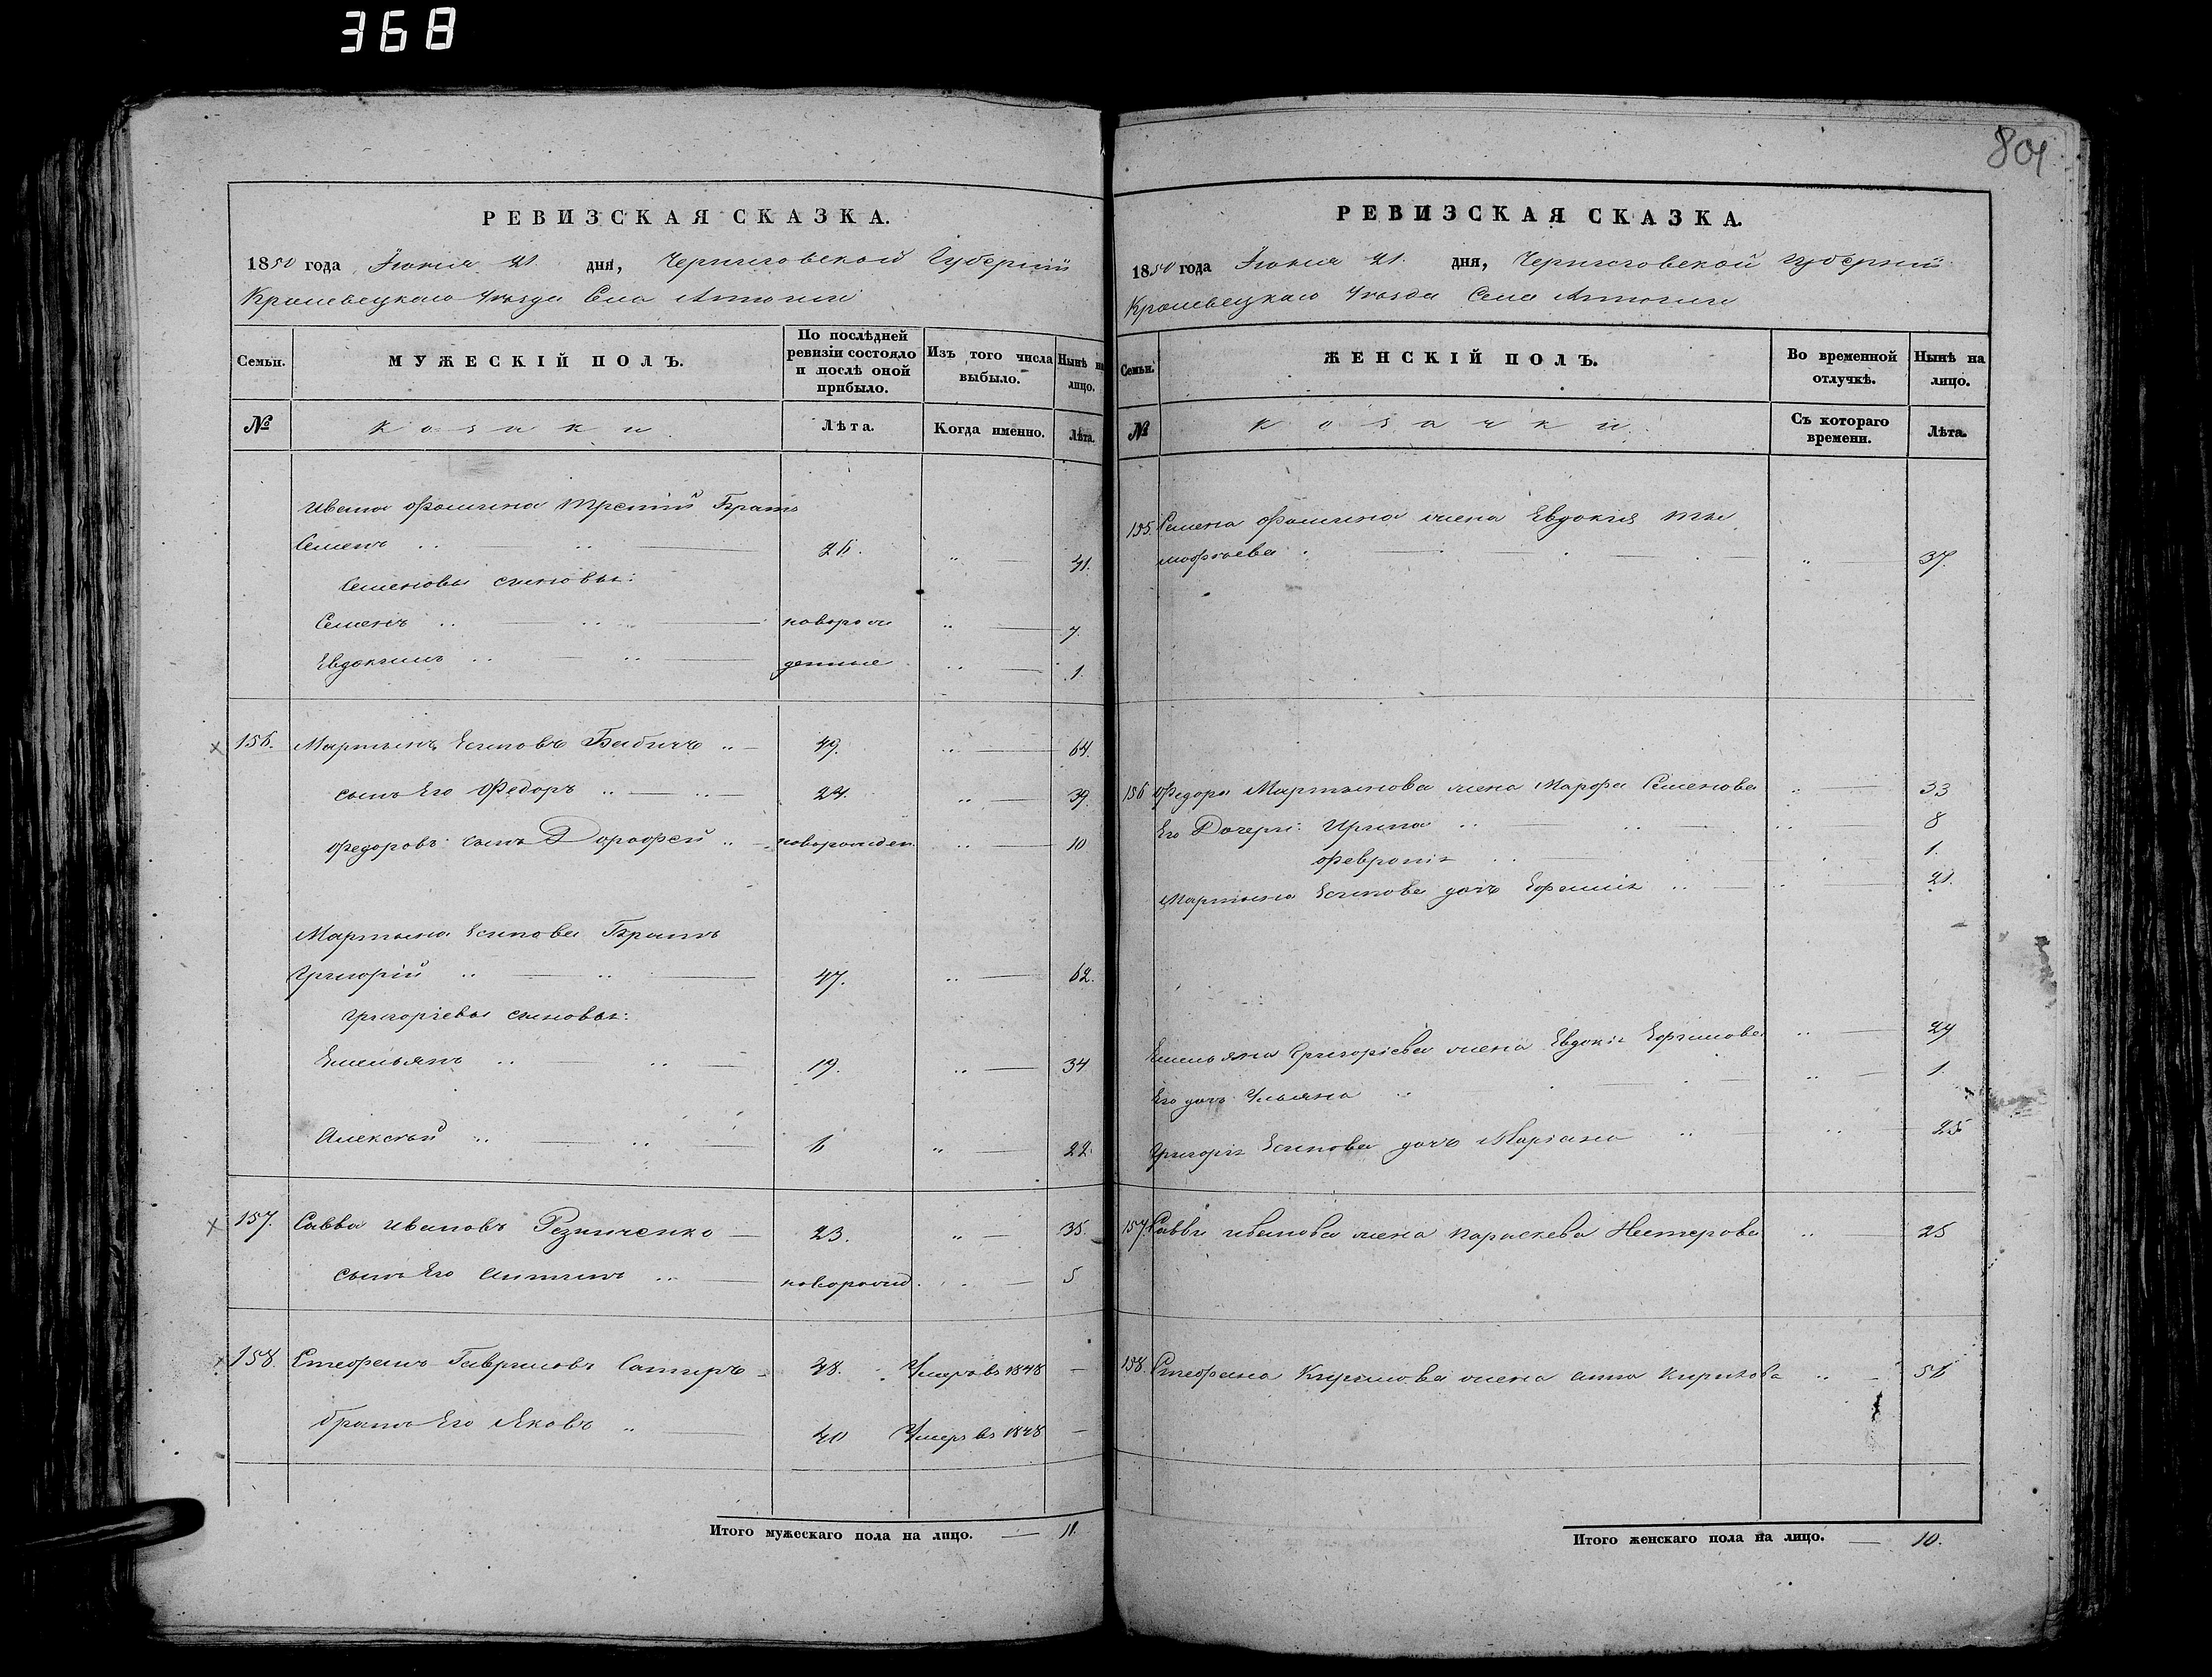 368
801
РЕВИЗСКАЯ СКАЗКА.
1850 года Іюния 21. дня, Черниговской Губерніи
Кролевецкаго Уѣзда Села
Семьи.
МУЖЕСКІЙ ПОЛЪ.
По послѣдней ревизіи состояло и послѣ оной прибыло.
Изъ того числа выбыло.
Нынѣ на лицо.
№
Козаки
Лѣта.
Когда именно.
Лѣта.
Ивана Фомина третий Братъ
Семенъ 26. 41.
Семеновы сыновы:
Семенъ новорож 7.
Евдокимъ денные 1.
156. Мартынъ Есиповъ Бабичъ 49. 64.
сынъ Его Федоръ 24. 39.
Федоровъ сынъ Дорофей новорожден. 10
Мартына Есипова Братъ
Григорій 47. 62.
Григоріевы сыновы:
Емельянъ 19. 34
Алексѣй 6 22.
157. Савва Ивановъ Резниченко 23. 35.
сынъ Его Антипъ новорожд. 5
158. Стефанъ Гавриловъ 48. Умеръ въ 1848 —
братъ Его Яковъ 40 Умеръ въ 1848 —
Итого мужескаго пола на лицо. — 11.
РЕВИЗСКАЯ СКАЗКА.
1850 года Іюния 21. дня, Черниговской Губерніи
Кролевецкаго Уѣзда Села
Семьи.
ЖЕНСКІЙ ПОЛЪ.
Во временной отлучкѣ.
Нынѣ на лицо.
№
Козачки
Съ котораго времени.
Лѣта.
155. Семена Фомина жена Евдокия Ти
мофѣева 37.
156 Федора Мартынова жена Марфа Семенова 33
Его Дочери: Ирина 8
Феврония 1.
Мартына Есипова дочь Ефимия 21.
Емельяна Григоріева жена Евдокия Ефимова 29
Его дочь Ульяна 1.
Григория Есипова дочь Маріана 25
157. Саввы Иванова жена Параскева Нестерова 25
158. Стефана жена Анна Кирилова 56
Итого женскаго пола на лицо. — 10.